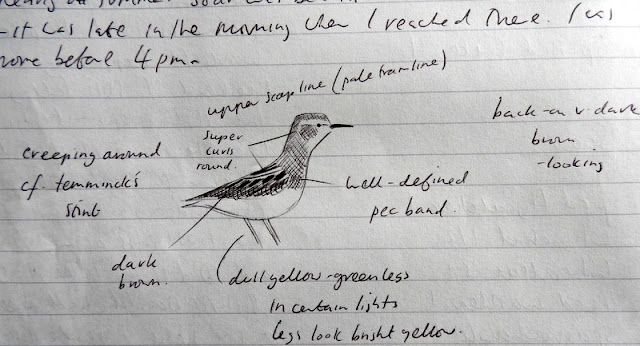 - it was late in the morning when I reached there. I was
more before 4pm.
upper scap line (pale tramline)
super
curls
round.
back-on v. dark
brown
-looking
creeping around
cf. temminck's
stint
well-defined
pec band.
dark
brown.
dull yellow-green legs
in certain lights
legs look bright yellow.